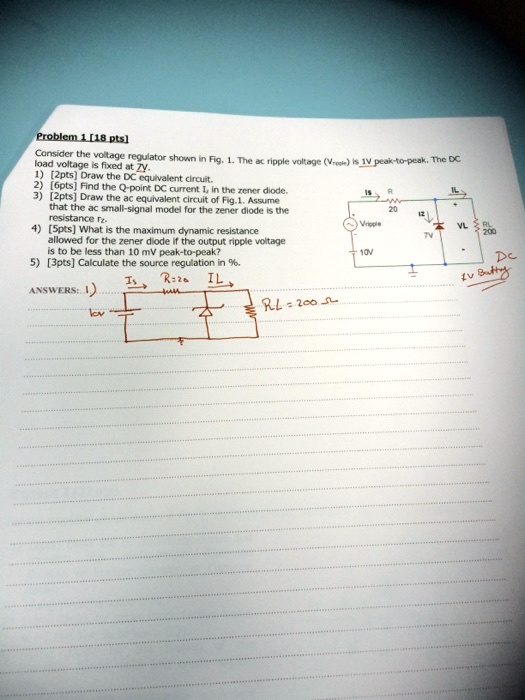 Problem 1 [18 pts]
Consider the voltage regulator shown in Fig. 1. The ac ripple voltage (Vripple) is 1V peak-to-peak. The DC
load voltage is fixed at 7V.
1) [2pts] Draw the DC equivalent circuit.
2) [6pts] Find the Q-point DC current Iz in the zener diode.
3) [2pts] Draw the ac equivalent circuit of Fig.1. Assume
that the ac small-signal model for the zener diode is the
resistance rz.
4) [5pts] What is the maximum dynamic resistance
allowed for the zener diode if the output ripple voltage
is to be less than 10 mV peak-to-peak?
5) [3pts] Calculate the source regulation in %.
IS R IL
20
IZ
+
Vripple
7V
VL
RL
200
10V
-
DC
Battry
ANSWERS: 1)
Is R=20 IL
10v
RL = 200 Ω